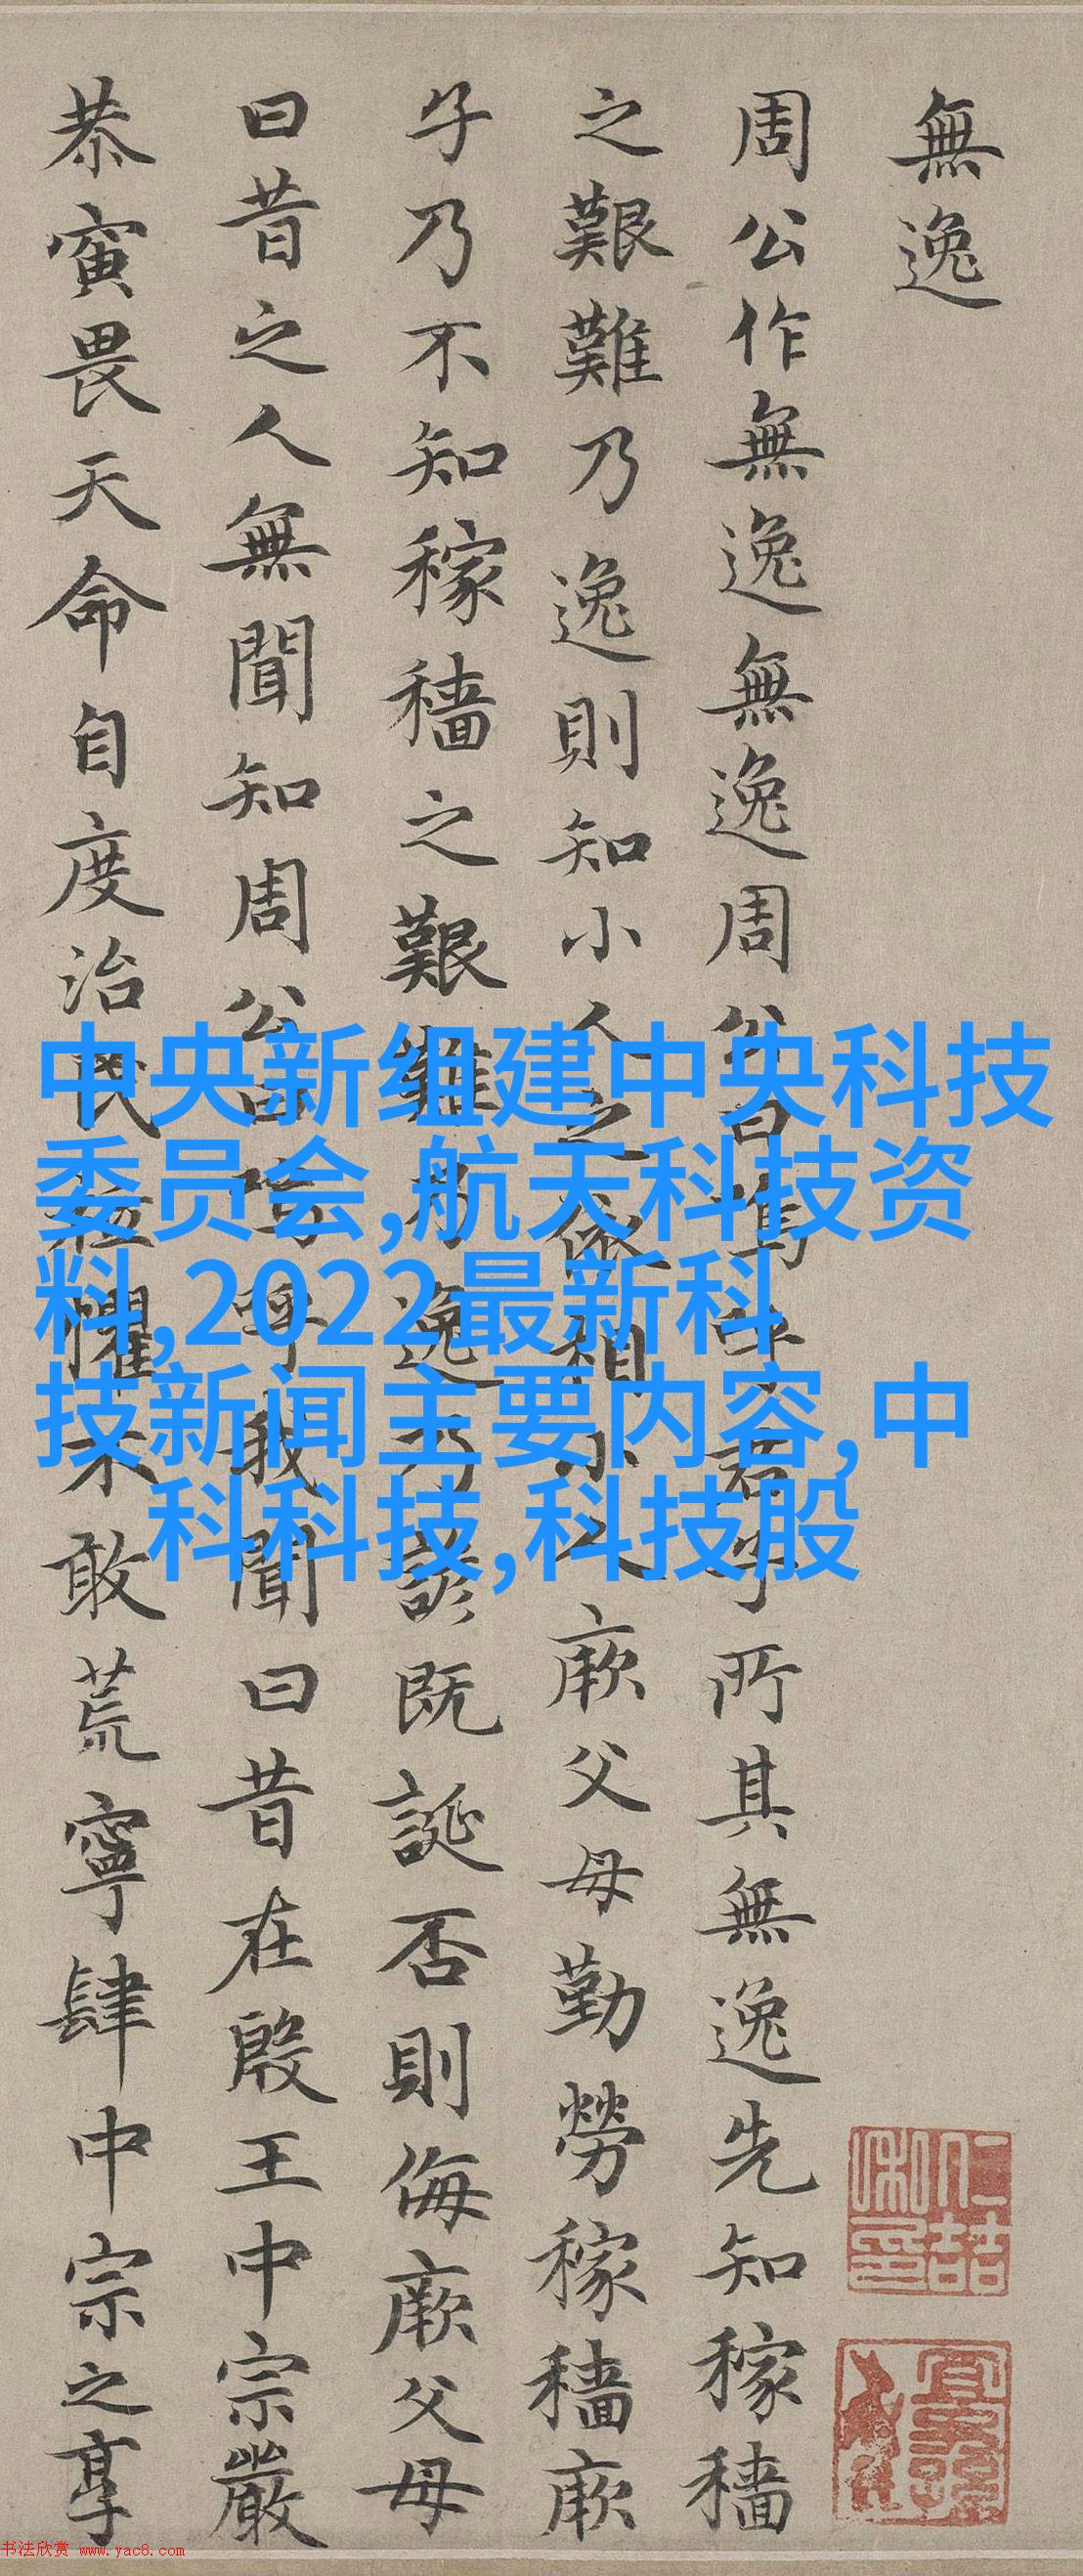 無逸
周公作無逸無逸周公曰嗚呼君子所其無逸先知稼穡
之艱難乃逸則知小人之依相小人厥父母勤勞稼穡厥
子乃不知稼穡之艱難乃逸乃諺既誕否則侮厥父母
曰昔之人無聞知周公曰嗚呼我聞曰昔在殷王中宗嚴
恭寅畏天命自度治民祗懼不敢荒寧肆中宗之享
中央新组建中央科技
委员会,航天科技资
料,2022最新科
技新闻主要内容,中
科科技,科技股
书法欣赏 www.yac8.com